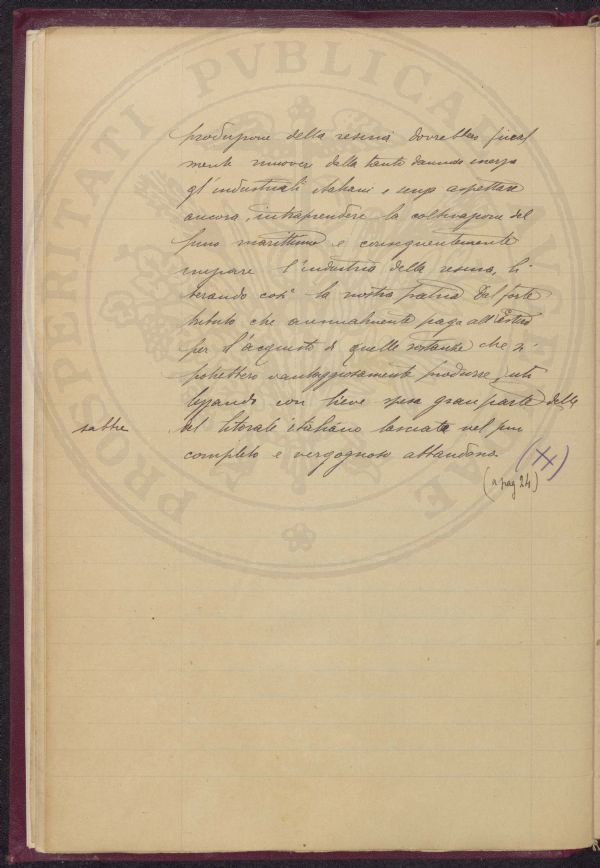 produzione della resina dovrebbero final
mente muovere dalla tanto dannosa inerzia
gl'industriali italiani e senza aspettare
ancora, intraprendere la coltivazione del
pino marittimo e conseguentemente
iniziare l'industria della resina, li-
berando così la nostra patria dal forte
tributo che annualmente paga all'Estero
per l'acquisto di quelle sostanze che si
potrebbero vantaggiosamente produrre, uti
lizzando con lieve spesa gran parte delle
sabbie del litorale italiano lasciata nel più
completo e vergognoso abbandono.
(a pag 24)
PROSPERITATI PVBLICAE